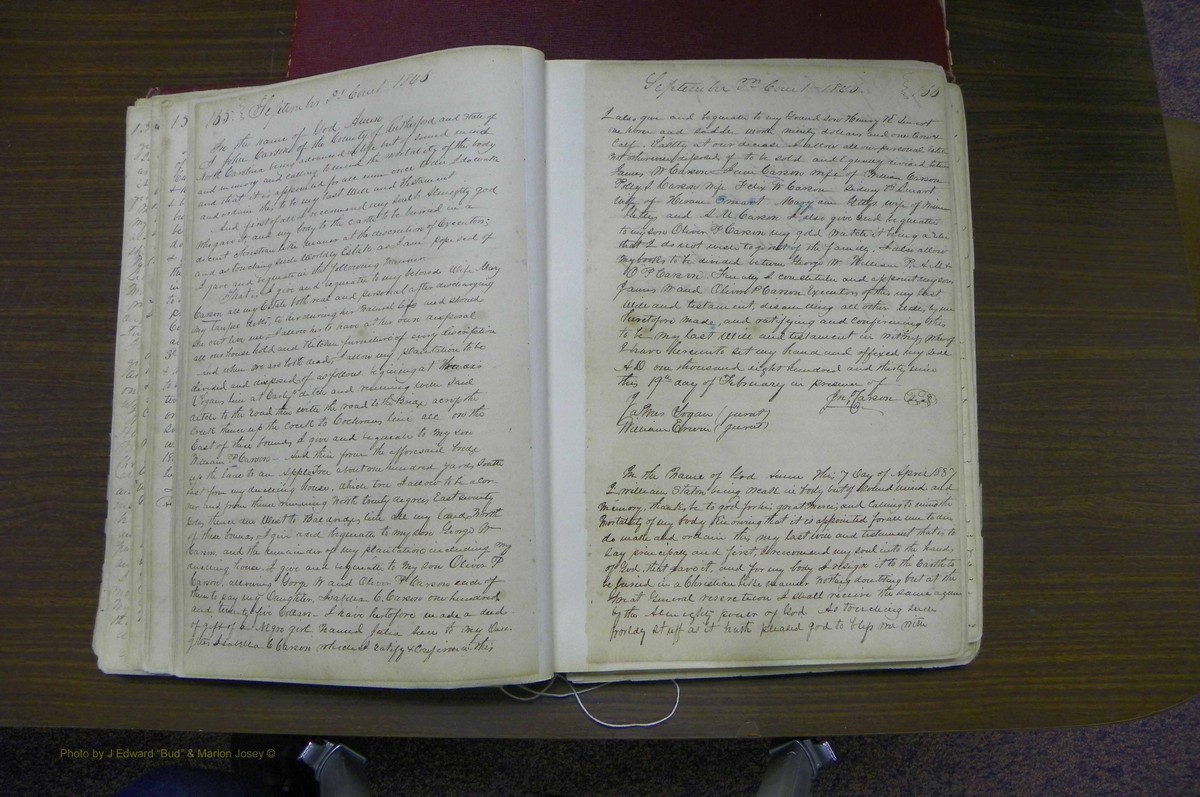 September 3d Court 1845
In the name of God Amen
I John Carson of the County of Rutherford and State of
North Carolina being advanced in life but of sound mind
and memory and calling to mind the mortality of the body
and that it is appointed for all men once to die I do make
and ordain this to be my last Will and Testament
And first of all I recommend my soul to Almighty god
who gave it, and my body to the earth to be buried in a
decent Christian like manner at the discretion of Executors;
and as touching such Worldly Estate as I am possessed of
I give and bequeath in the following manner
First I give and bequeath to my beloved Wife Mary
Carson all my Estate both real and personal after discharging
my lawful debts, to her during her natural life and should
she out live me, I allow her to have at her own disposal
all our house hold and Kitchen furniture of every description
and when we are both dead, I allow my plantation to be
divided and disposed of as follows begining at
Logans line at ditch and running with said
ditch to the road then with the road to the Bridge across the
Creek thence up the Creek to Cochrans line all on the
East of these bounds I give and bequeath to my son
William P Carson - And then from the afforesaid bridge
up the lane to an Appletree about one hundred yards South
East from my dwelling house, which tree I allow to be a cor
ner and from thence running North twenty degrees East seventy
poles thence due West to line all my land North
of these bounds I give and bequeath to my son George W
Carson and the remainder of my plantation including my
dwelling house I give and bequeath to my son Oliver P
Carson, allowing George W and Oliver P Carson each of
them to pay my Daughter, Isabella C. Carson one hundred
and twenty five Dollars - I have heretofore made a deed
of gift of a Negro girl named to my Daug
hter Isabella C Carson which I ratify & confirm in this
September 3d Court 1845
I also give and bequeath to my Grand son Henry W Smart
one horse and saddle worth ninety dollars and one cow &
Calf. Lastly at our decease I allow all our personal estate
not otherwise disposed of to be sold and equally divided between
James W Carson Jean Carson wife of William Carson
Polly S Carson wife Felix W Carson Sidney P Smart
wife of Herman Smart Mary ann wife of
and S. M. Carson I also give and bequeath
to my son Oliver P Carson my gold Watch it being a
that I do not wish to go out of the family, I also allow
my books to be divided between George W William P. S. M &
O P Carson Finally I constitute and appoint my son
James W and Oliver P Carson Executors of this my last
Will and testament, disannulling all other Wills by me
heretofore made, and ratifying and confirming this
to be my last Will and testament in witness whereof
I have hereunto set my hand and affixed my seal
A.D one thousand eight hundred and thirty nine
this 19th day of February in presence of
Jno Carson
James Logan (jurat)
William (jurat)
In the Name of God Amen This 7 Day of April 1837
I William Staton being Weak in body but of sound mind and
memory thanks be to god for his great mercies and calling to mind the
Mortality of my body Knowing that it is appointed for all men to die
do make and ordain this my last will and testament that is to
say principally and first I recommend my soul into the hands
of God that gave it, and for my body I resign it to the Earth to
be buried in a Christian like manner nothing doubting but at the
Great General resurection I shall receive the same again
by the Almighty power of God As touching such
worldly stuff as it hath pleased god to bless me with
Photo by J Edward "Bud" & Marion Josey ©